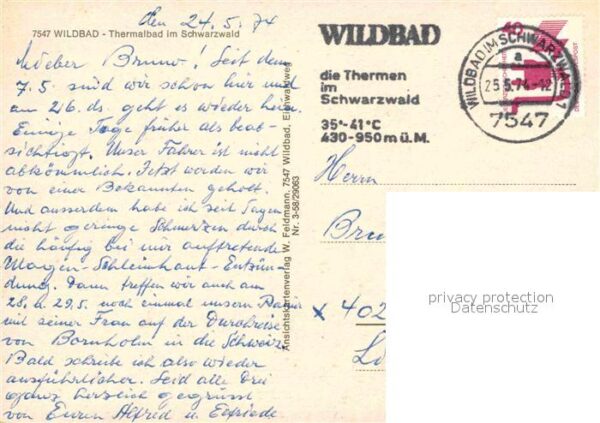 den 24.5.74
7547 WILDBAD - Thermalbad im Schwarzwald
Lieber Bruno! Seit dem
7.5. sind wir schon hier und
am 26. ds. geht es wieder heim.
Einige Tage früher als beab-
sichtigt. Unser Fahrer ist nicht
abkömmlich. Jetzt werden wir
von einer Bekannten geholt.
Und ausserdem habe ich seit Tagen
nicht geringe Schmerzen durch
die häufig bei mir auftretende
Magen-Schleimhaut-Entzün-
dung. Dann treffen wir auch am
28. u. 29.5. noch einmal unsern
mit seiner Frau auf der Durchreise
von Bornholm in die Schweiz.
Bald schreibe ich also wieder
ausführlicher. Seid alle drei
ganz herzlich gegrüsst
von Euren Alfred u. Elfriede
Ansichtskartenverlag W. Feldmann, 7547 Wildbad, Enztwaldweg
Nr. 3-58/29063
WILDBAD
die Thermen
im
Schwarzwald
35°-41°C
430-950m ü.M.
WILDBAD IM SCHWARZWALD 1
a
25.5.74-12
7547
Herrn
Bru
x 402
privacy protection
Datenschutz